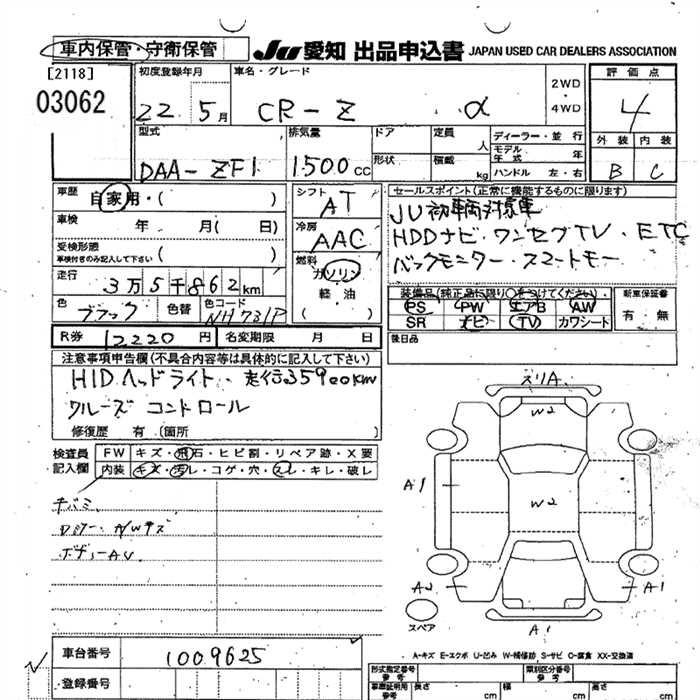 車内保管・守衛保管 JU愛知 出品申込書 JAPAN USED CAR DEALERS ASSOCIATION
[2118]
03062
初度登録年月
22. 5月
車名・グレード
CR-Z α
2WD
・
4WD
評価点
4
外装 内装
B C
型式
DAA-ZF1
排気量
1500cc
ドア
形状
定員
人
積載
kg
ディーラー・並行
モデル年式 年
ハンドル 左・右
車歴
自家用・( )
車検
年 月( 日)
受検形態
車検付きのみ記入して下さい ( )
走行
3万5千862km
色
ブラック
色替
色コード
NH731P
シフト
AT
冷房
AAC
燃料
ガソリン
軽油
( )
セールスポイント(正常に機能するものに限ります)
JU初車輌対象車
HDDナビ・ワンセグTV・ETC
バックモニター・スマートキー
装備品(純正品に限り○をつけてください)
PS PW エアB AW
SR ナビ TV カワシート
新車保証書
有・無
R券 12220円 名変期限 月 日
後日品
注意事項申告欄(不具合内容等は具体的に記入して下さい)
HIDヘッドライト・走行35900km
クルーズコントロール
修復歴 有(箇所 )
検査員
記入欄
FW キズ・飛石・ヒビ割・リペア跡・X要
内装 キズ・汚レ・コゲ・穴・スレ・キレ・破レ
チバミ
A/Wキズ
ボディーAU
スリA
W2
A1
W2
A2
A1
スペア
A1
A-キズ E-エクボ U-凹み W-補修跡 S-サビ C-腐食 XX-交換済
車台番号 1009625
登録番号
形式指定番号 類別区分番号
車庫証明用 長さ cm 幅 cm 高さ cm